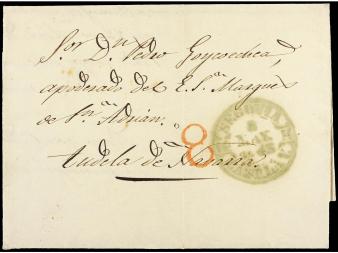 Sor Dn Pedro Goycoechea,
apoderado del E. Sr Marques
de Sn Adrian.
Tudela de Navarra.
8
SEGOVIA
8